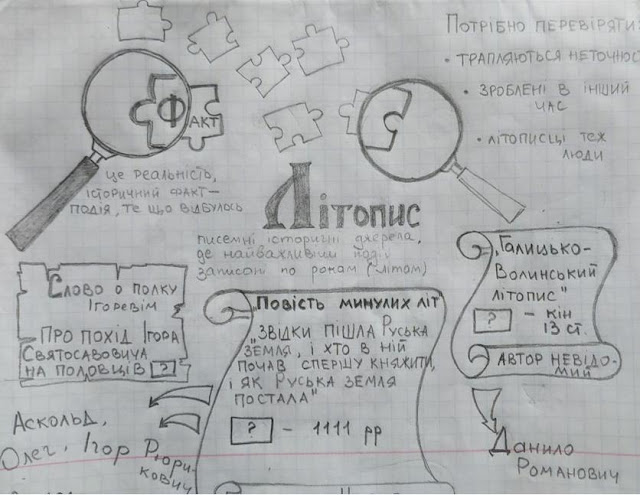 Потрібно перевіряти:
• трапляються неточнос
• зроблені в інший
час
• літописці теж
люди
Факт
це реальність,
історичний факт–
подія, те що відбулось
Літопис
писемні історичні джерела,
де найважливіші події
записані по рокам (літам)
Слово о полку
Ігоревім
Про похід Ігора
Святосавовича
на половців ?
Повість минулих літ
„Звідки пішла Руська
земля, і хто в ній
почав спершу княжити,
і як Руська земля
постала"
? – 1111 рр
„Галицько-
Волинський
літопис"
? – кін
13 ст.
Автор невідо-
мий
Аскольд,
Олег, Ігор Рюри-
кович
Данило
Романович